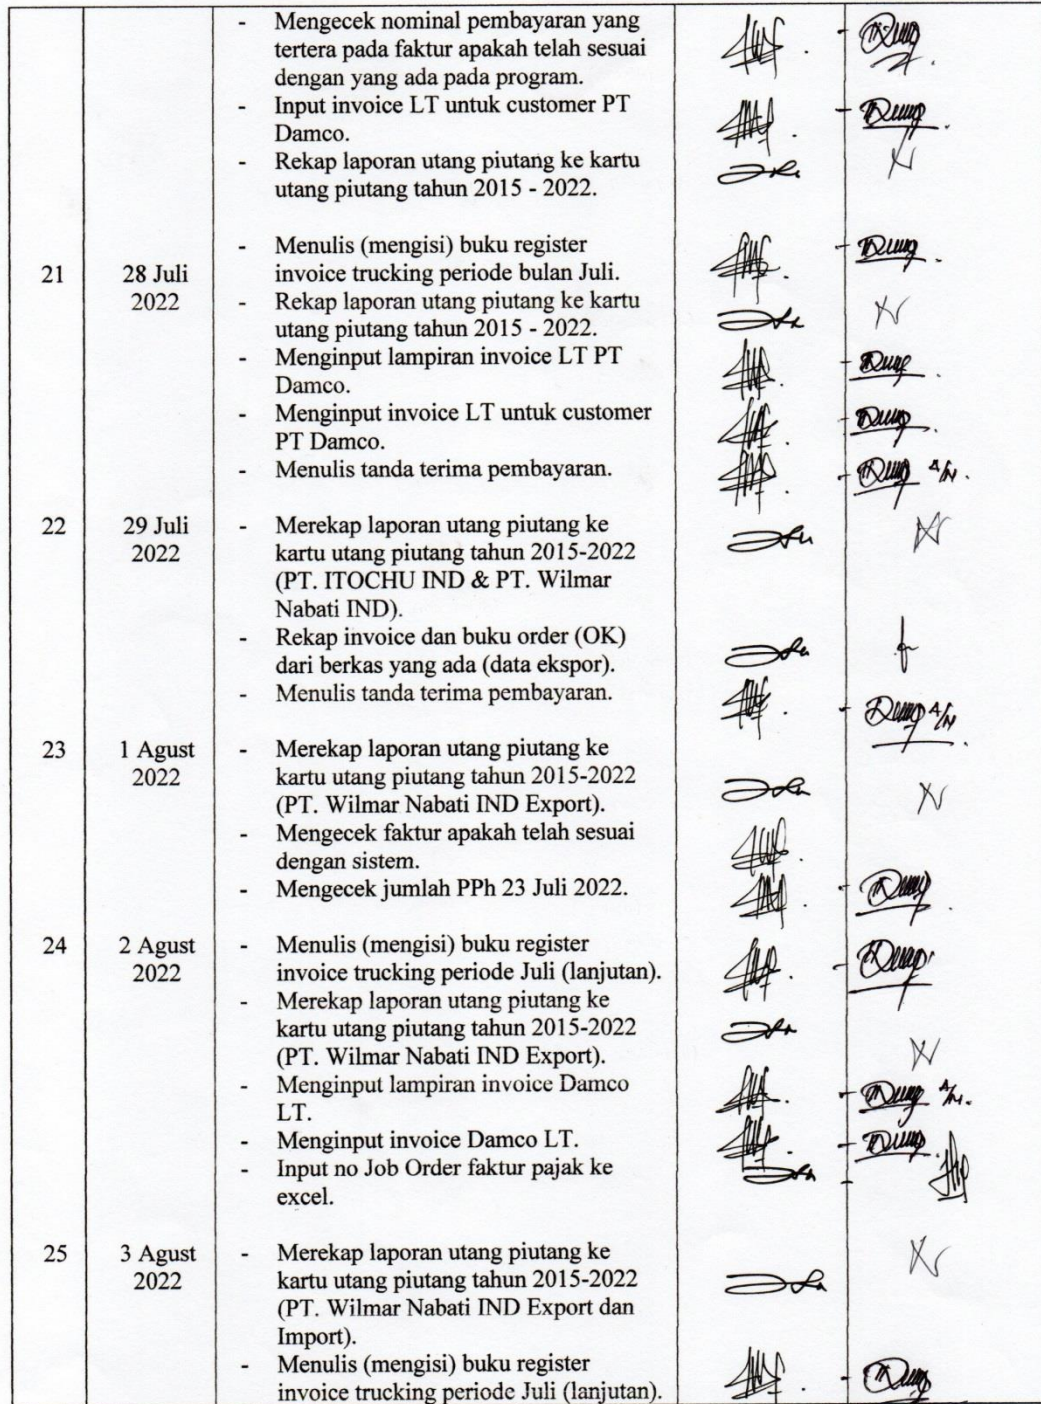 - Mengecek nominal pembayaran yang
tertera pada faktur apakah telah sesuai
dengan yang ada pada program.
- Input invoice LT untuk customer PT
Damco.
- Rekap laporan utang piutang ke kartu
utang piutang tahun 2015 - 2022.
- Menulis (mengisi) buku register
21 28 Juli invoice trucking periode bulan Juli.
2022 - Rekap laporan utang piutang ke kartu
utang piutang tahun 2015 - 2022.
- Menginput lampiran invoice LT PT
Damco.
- Menginput invoice LT untuk customer
PT Damco.
- Menulis tanda terima pembayaran. A/N.
22 29 Juli - Merekap laporan utang piutang ke
2022 kartu utang piutang tahun 2015-2022
(PT. ITOCHU IND & PT. Wilmar
Nabati IND).
- Rekap invoice dan buku order (OK)
dari berkas yang ada (data ekspor).
- Menulis tanda terima pembayaran. A/N
23 1 Agust - Merekap laporan utang piutang ke
2022 kartu utang piutang tahun 2015-2022
(PT. Wilmar Nabati IND Export).
- Mengecek faktur apakah telah sesuai
dengan sistem.
- Mengecek jumlah PPh 23 Juli 2022.
24 2 Agust - Menulis (mengisi) buku register
2022 invoice trucking periode Juli (lanjutan).
- Merekap laporan utang piutang ke
kartu utang piutang tahun 2015-2022
(PT. Wilmar Nabati IND Export).
- Menginput lampiran invoice Damco A/N.
LT.
- Menginput invoice Damco LT.
- Input no Job Order faktur pajak ke
excel.
25 3 Agust - Merekap laporan utang piutang ke
2022 kartu utang piutang tahun 2015-2022
(PT. Wilmar Nabati IND Export dan
Import).
- Menulis (mengisi) buku register
invoice trucking periode Juli (lanjutan).